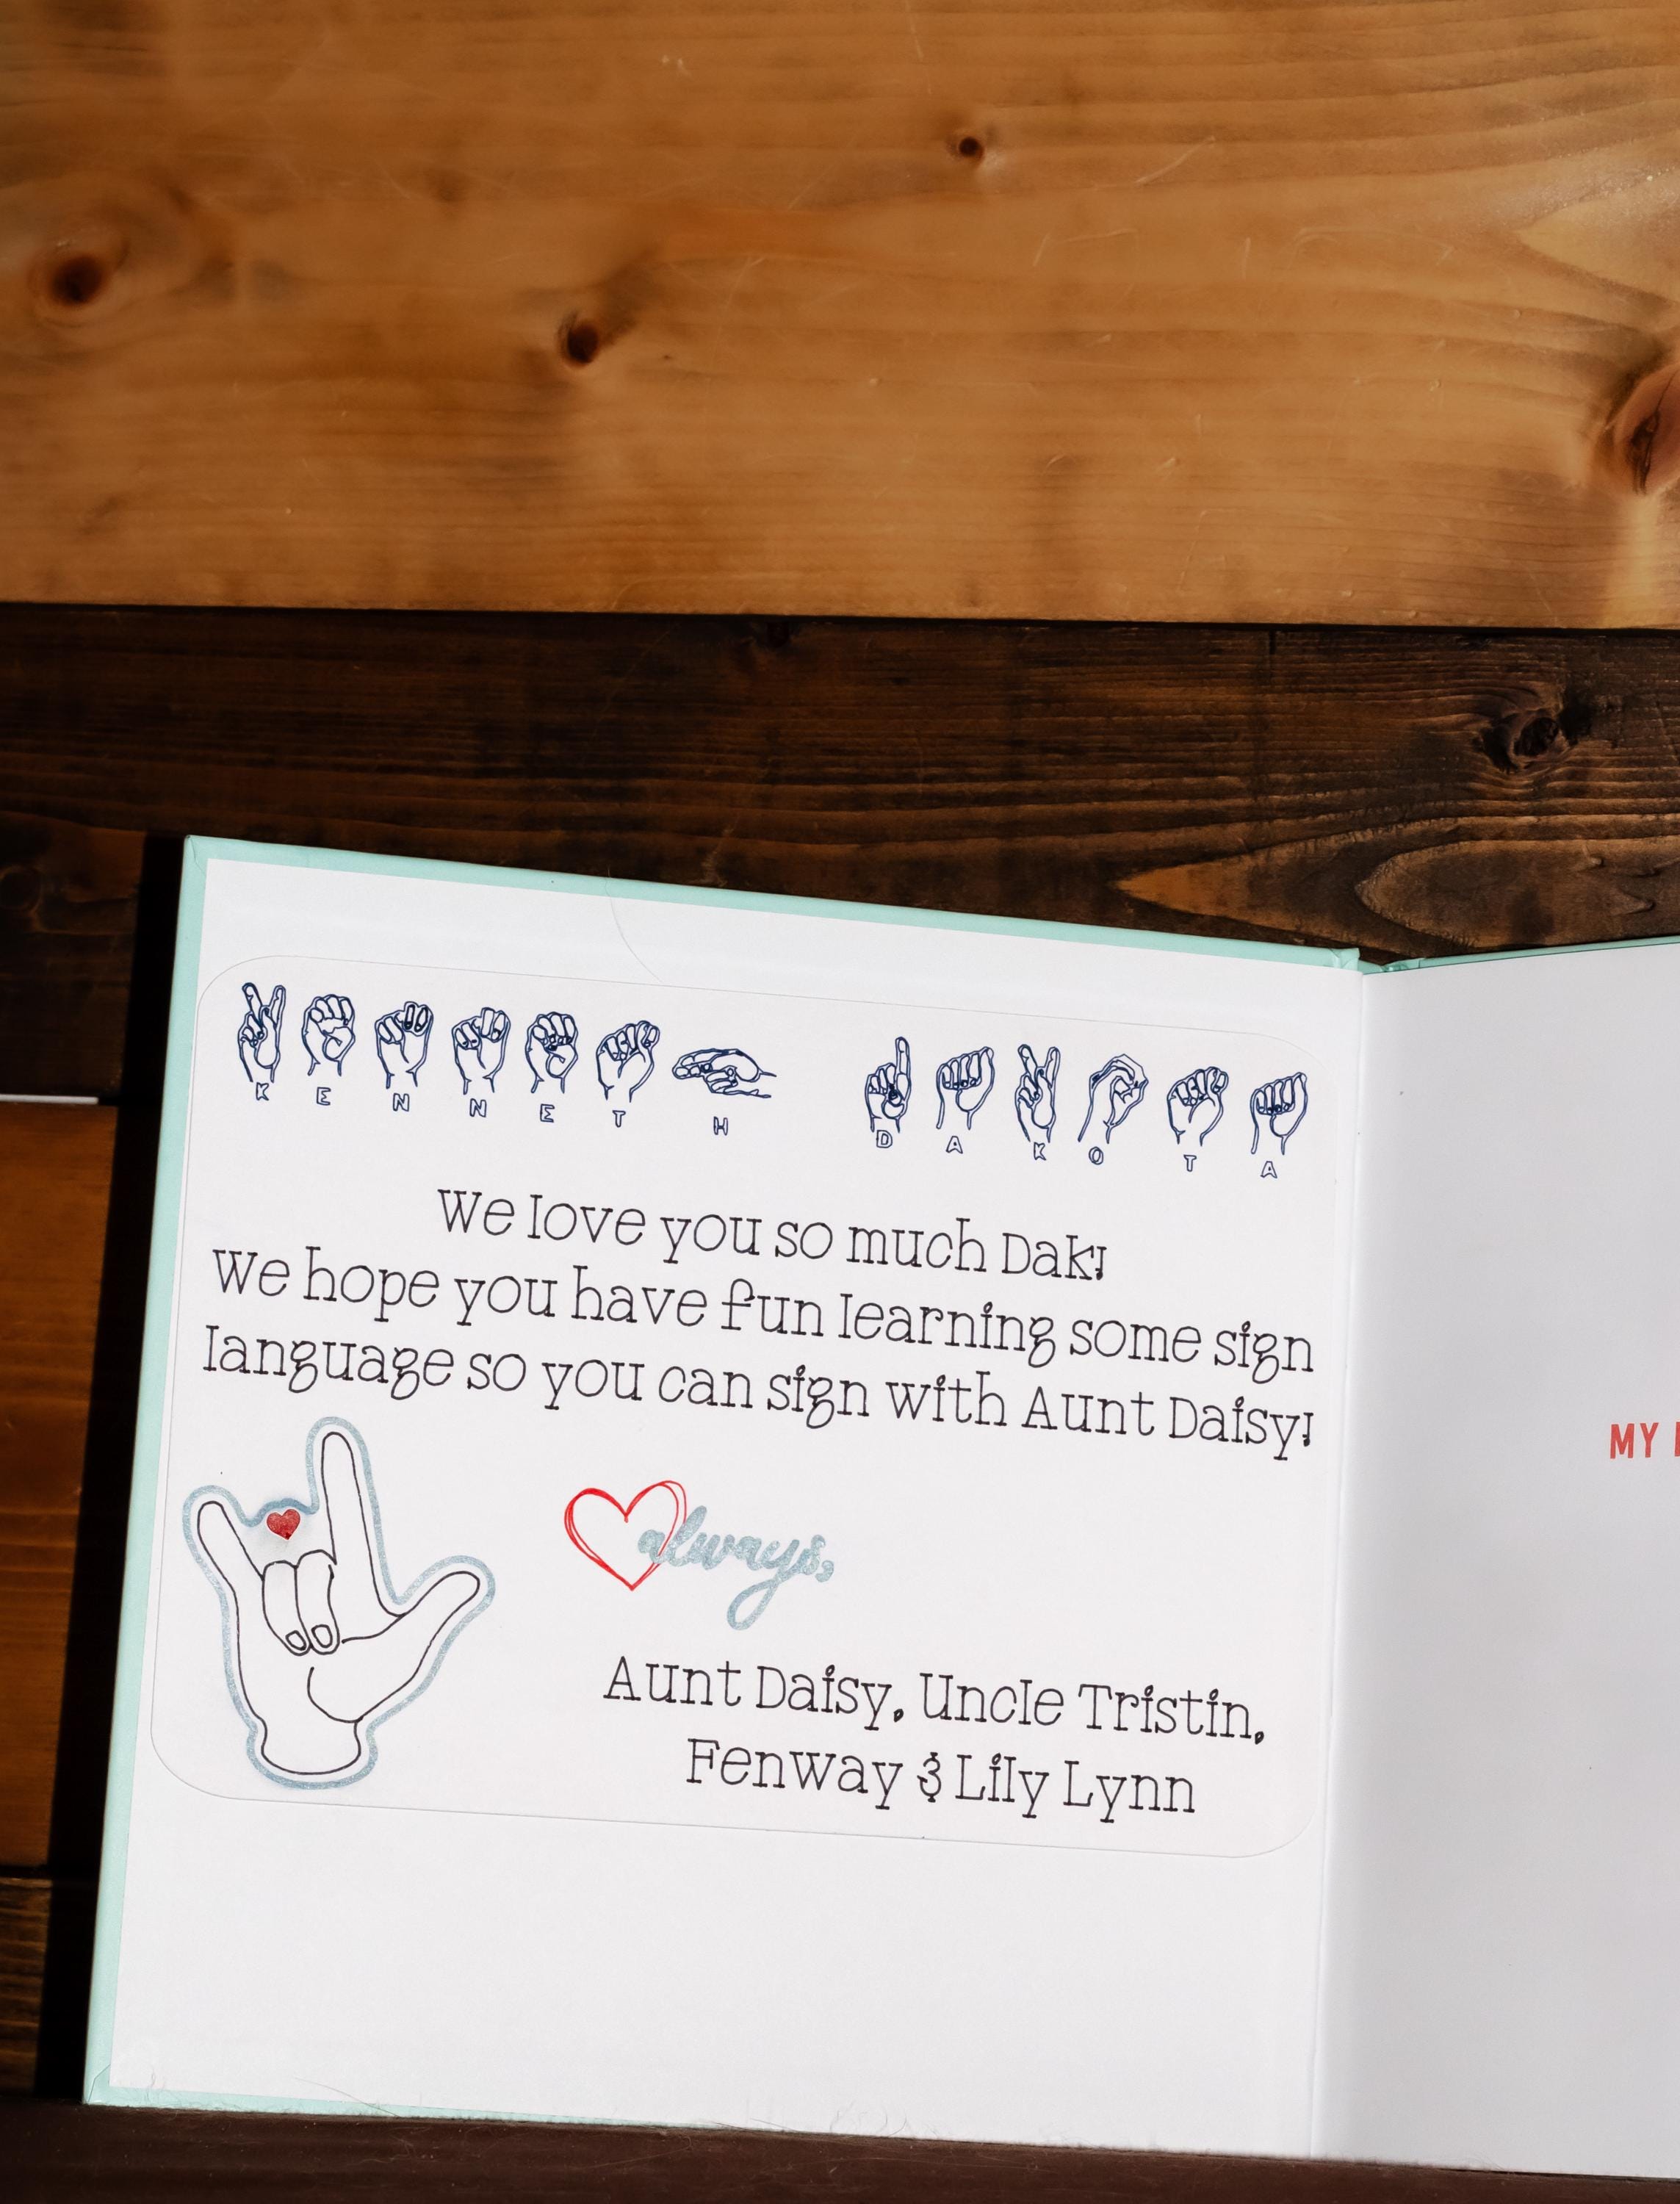 K E N N E T H D A K O T A
We love you so much Dak!
We hope you have fun learning some sign
language so you can sign with Aunt Daisy!
always,
Aunt Daisy, Uncle Tristin,
Fenway & Lily Lynn
MY